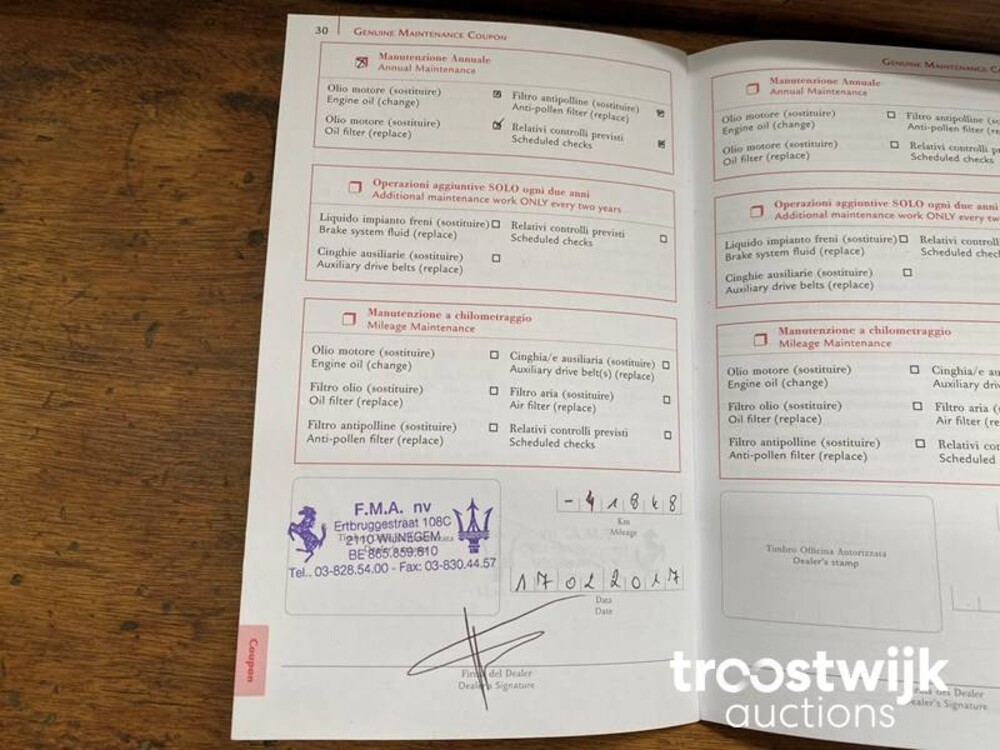 30 GENUINE MAINTENANCE COUPON
Manutenzione Annuale
Annual Maintenance
Olio motore (sostituire)
Engine oil (change)
Filtro antipolline (sostituire)
Anti-pollen filter (replace)
Olio motore (sostituire)
Oil filter (replace)
Relativi controlli previsti
Scheduled checks
Operazioni aggiuntive SOLO ogni due anni
Additional maintenance work ONLY every two years
Liquido impianto freni (sostituire)
Brake system fluid (replace)
Relativi controlli previsti
Scheduled checks
Cinghie ausiliarie (sostituire)
Auxiliary drive belts (replace)
Manutenzione a chilometraggio
Mileage Maintenance
Olio motore (sostituire)
Engine oil (change)
Cinghia/e ausiliaria (sostituire)
Auxiliary drive belt(s) (replace)
Filtro olio (sostituire)
Oil filter (replace)
Filtro aria (sostituire)
Air filter (replace)
Filtro antipolline (sostituire)
Anti-pollen filter (replace)
Relativi controlli previsti
Scheduled checks
F.M.A. nv
Ertbruggestraat 108C
2110 WIJNEGEM
BE 865.859.810
Tel.. 03-828.54.00 - Fax: 03-830.44.57
- 41848
Km
Mileage
17022017
Data
Date
del Dealer
Dealer's Signature
Coupon
GENUINE MAINTENANCE
Manutenzione Annuale
Annual Maintenance
Olio motore (sostituire)
Engine oil (change)
Filtro antipolline
Anti-pollen filter
Olio motore (sostituire)
Oil filter (replace)
Relativi controlli
Scheduled checks
Operazioni aggiuntive SOLO ogni due anni
Additional maintenance work ONLY every
Liquido impianto freni (sostituire)
Brake system fluid (replace)
Relativi
Scheduled
Cinghie ausiliarie (sostituire)
Auxiliary drive belts (replace)
Manutenzione a chilometraggio
Mileage Maintenance
Olio motore (sostituire)
Engine oil (change)
Cinghia/e
Auxiliary
Filtro olio (sostituire)
Oil filter (replace)
Filtro aria
Air filter
Filtro antipolline (sostituire)
Anti-pollen filter (replace)
Relativi
Scheduled
Timbro Officina Autorizzata
Dealer's stamp
del Dealer
Signature
troostwijk
auctions